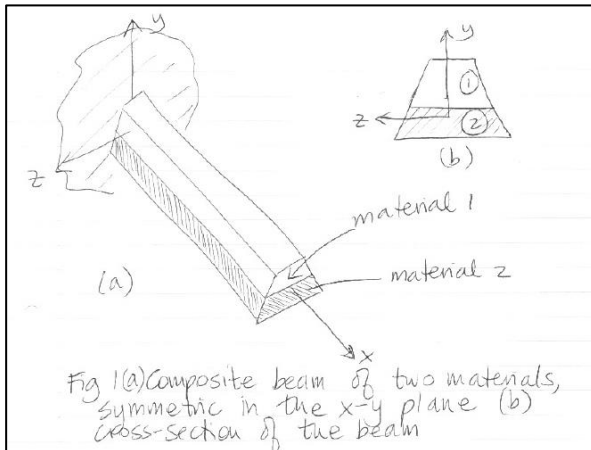 y
y
①
z
②
(b)
z
material 1
(a)
material 2
x
Fig 1(a) Composite beam of two materials,
symmetric in the x-y plane (b)
cross-section of the beam